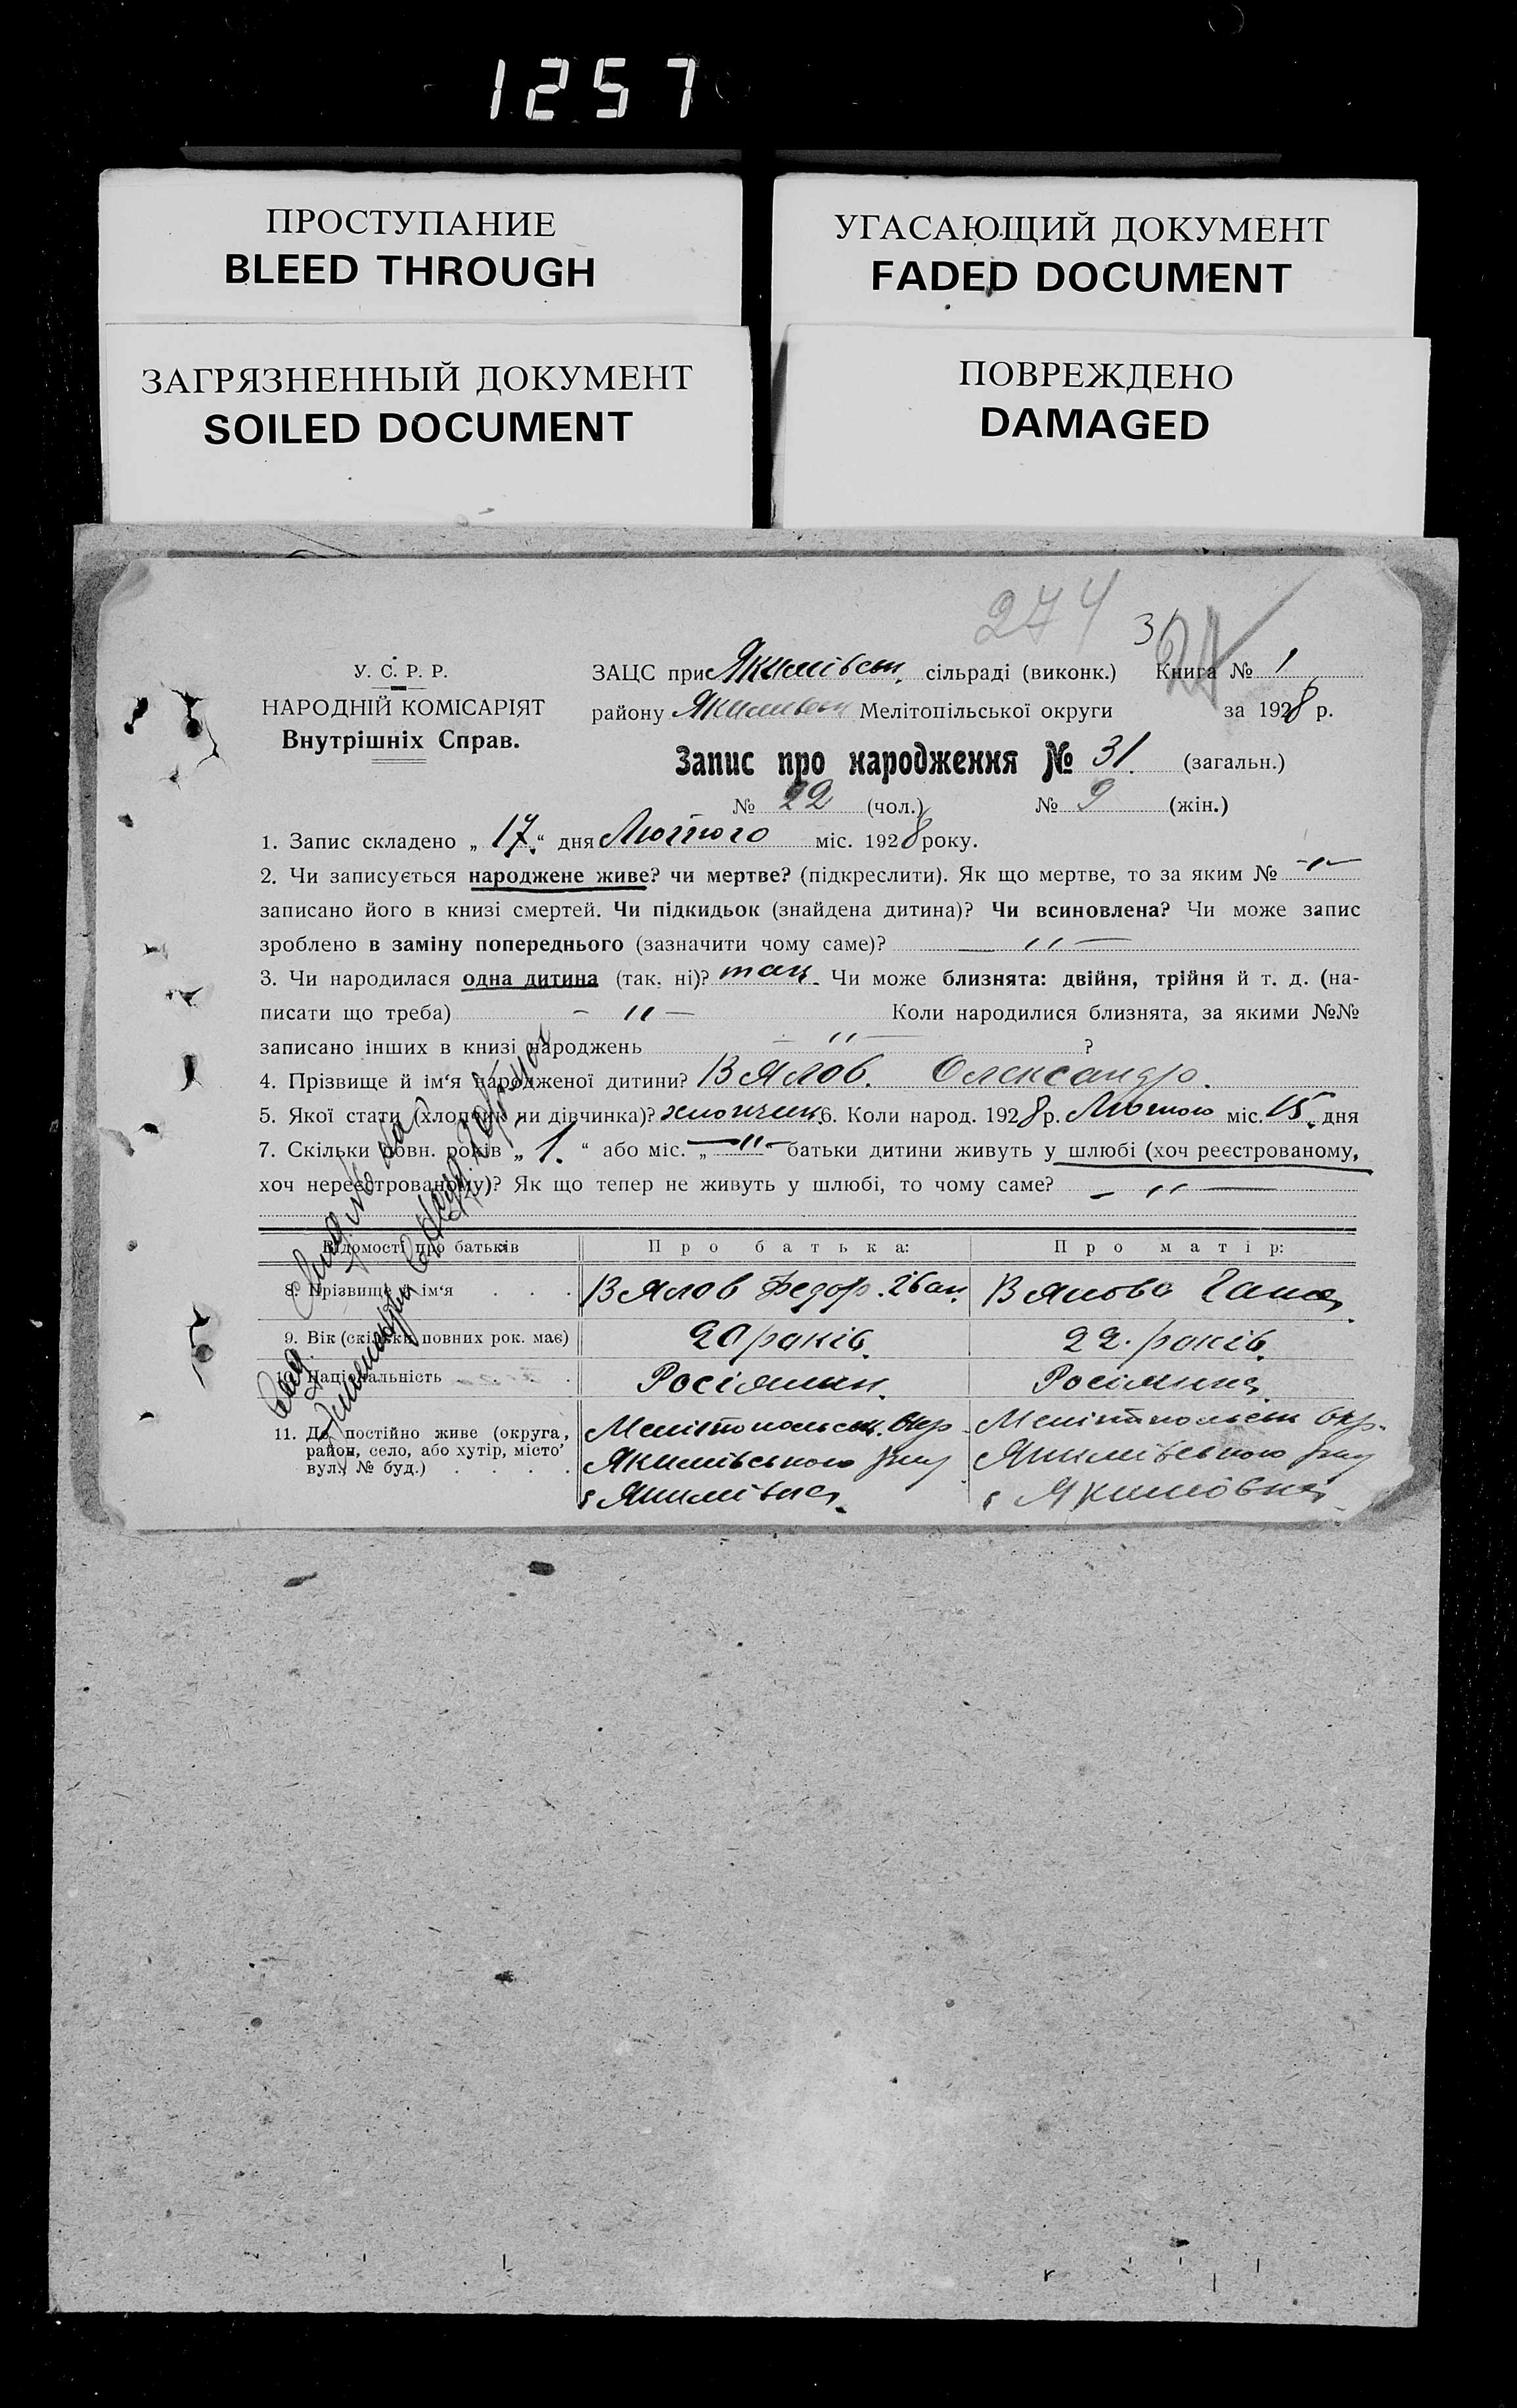 1257
ПРОСТУПАНИЕ
BLEED THROUGH
УГАСАЮЩИЙ ДОКУМЕНТ
FADED DOCUMENT
ЗАГРЯЗНЕННЫЙ ДОКУМЕНТ
SOILED DOCUMENT
ПОВРЕЖДЕНО
DAMAGED
274
31
У. С. Р. Р.
НАРОДНІЙ КОМІСАРІЯТ
Внутрішніх Справ.
ЗАЦС при Якимівськ. сільраді (виконк.) Книга № 1
району Якимівськ Мелітопільської округи за 1928 р.
Запис про народження № 31. (загальн.)
№ 22 (чол.) № 9 (жін.)
1. Запис складено „ 17 “ дня Лютого міс. 1928 року.
2. Чи записується народжене живе? чи мертве? (підкреслити). Як що мертве, то за яким № -"-
записано його в книзі смертей. Чи підкидьок (знайдена дитина)? Чи всиновлена? Чи може запис
зроблено в заміну попереднього (зазначити чому саме)? — " —
3. Чи народилася одна дитина (так, ні)? так. Чи може близнята: двійня, трійня й т. д. (на-
писати що треба) - " — Коли народилися близнята, за якими №№
записано інших в книзі народжень — " — ?
4. Прізвище й ім‘я народженої дитини? Вялов. Олександр.
5. Якої стати (хлопчик чи дівчинка)? хлопчик 6. Коли народ. 1928 р. Лютого міс. 15. дня
7. Скільки повн. років „ 1. “ або міс. „ —"— батьки дитини живуть у шлюбі (хоч реєстрованому,
хоч нереєстрованому)? Як що тепер не живуть у шлюбі, то чому саме? - " —
Відомості про батьків Про батька: Про матір:
8. Прізвище й ім‘я . . . Вялов Федор. Іван. Вялова Ганна
9. Вік (скільки повних рок. має) 20 років. 22. років.
10. Національність . . . . Росіянин. Росіянка
11. Де постійно живе (округа, район, село, або хутір, місто’ вул., № буд.) . . . .
Мелітопольськ. Окр Мелітопольськ Окр.
Якимівського р-ну Якимівського р-ну
с Якимівка. с Якимовка